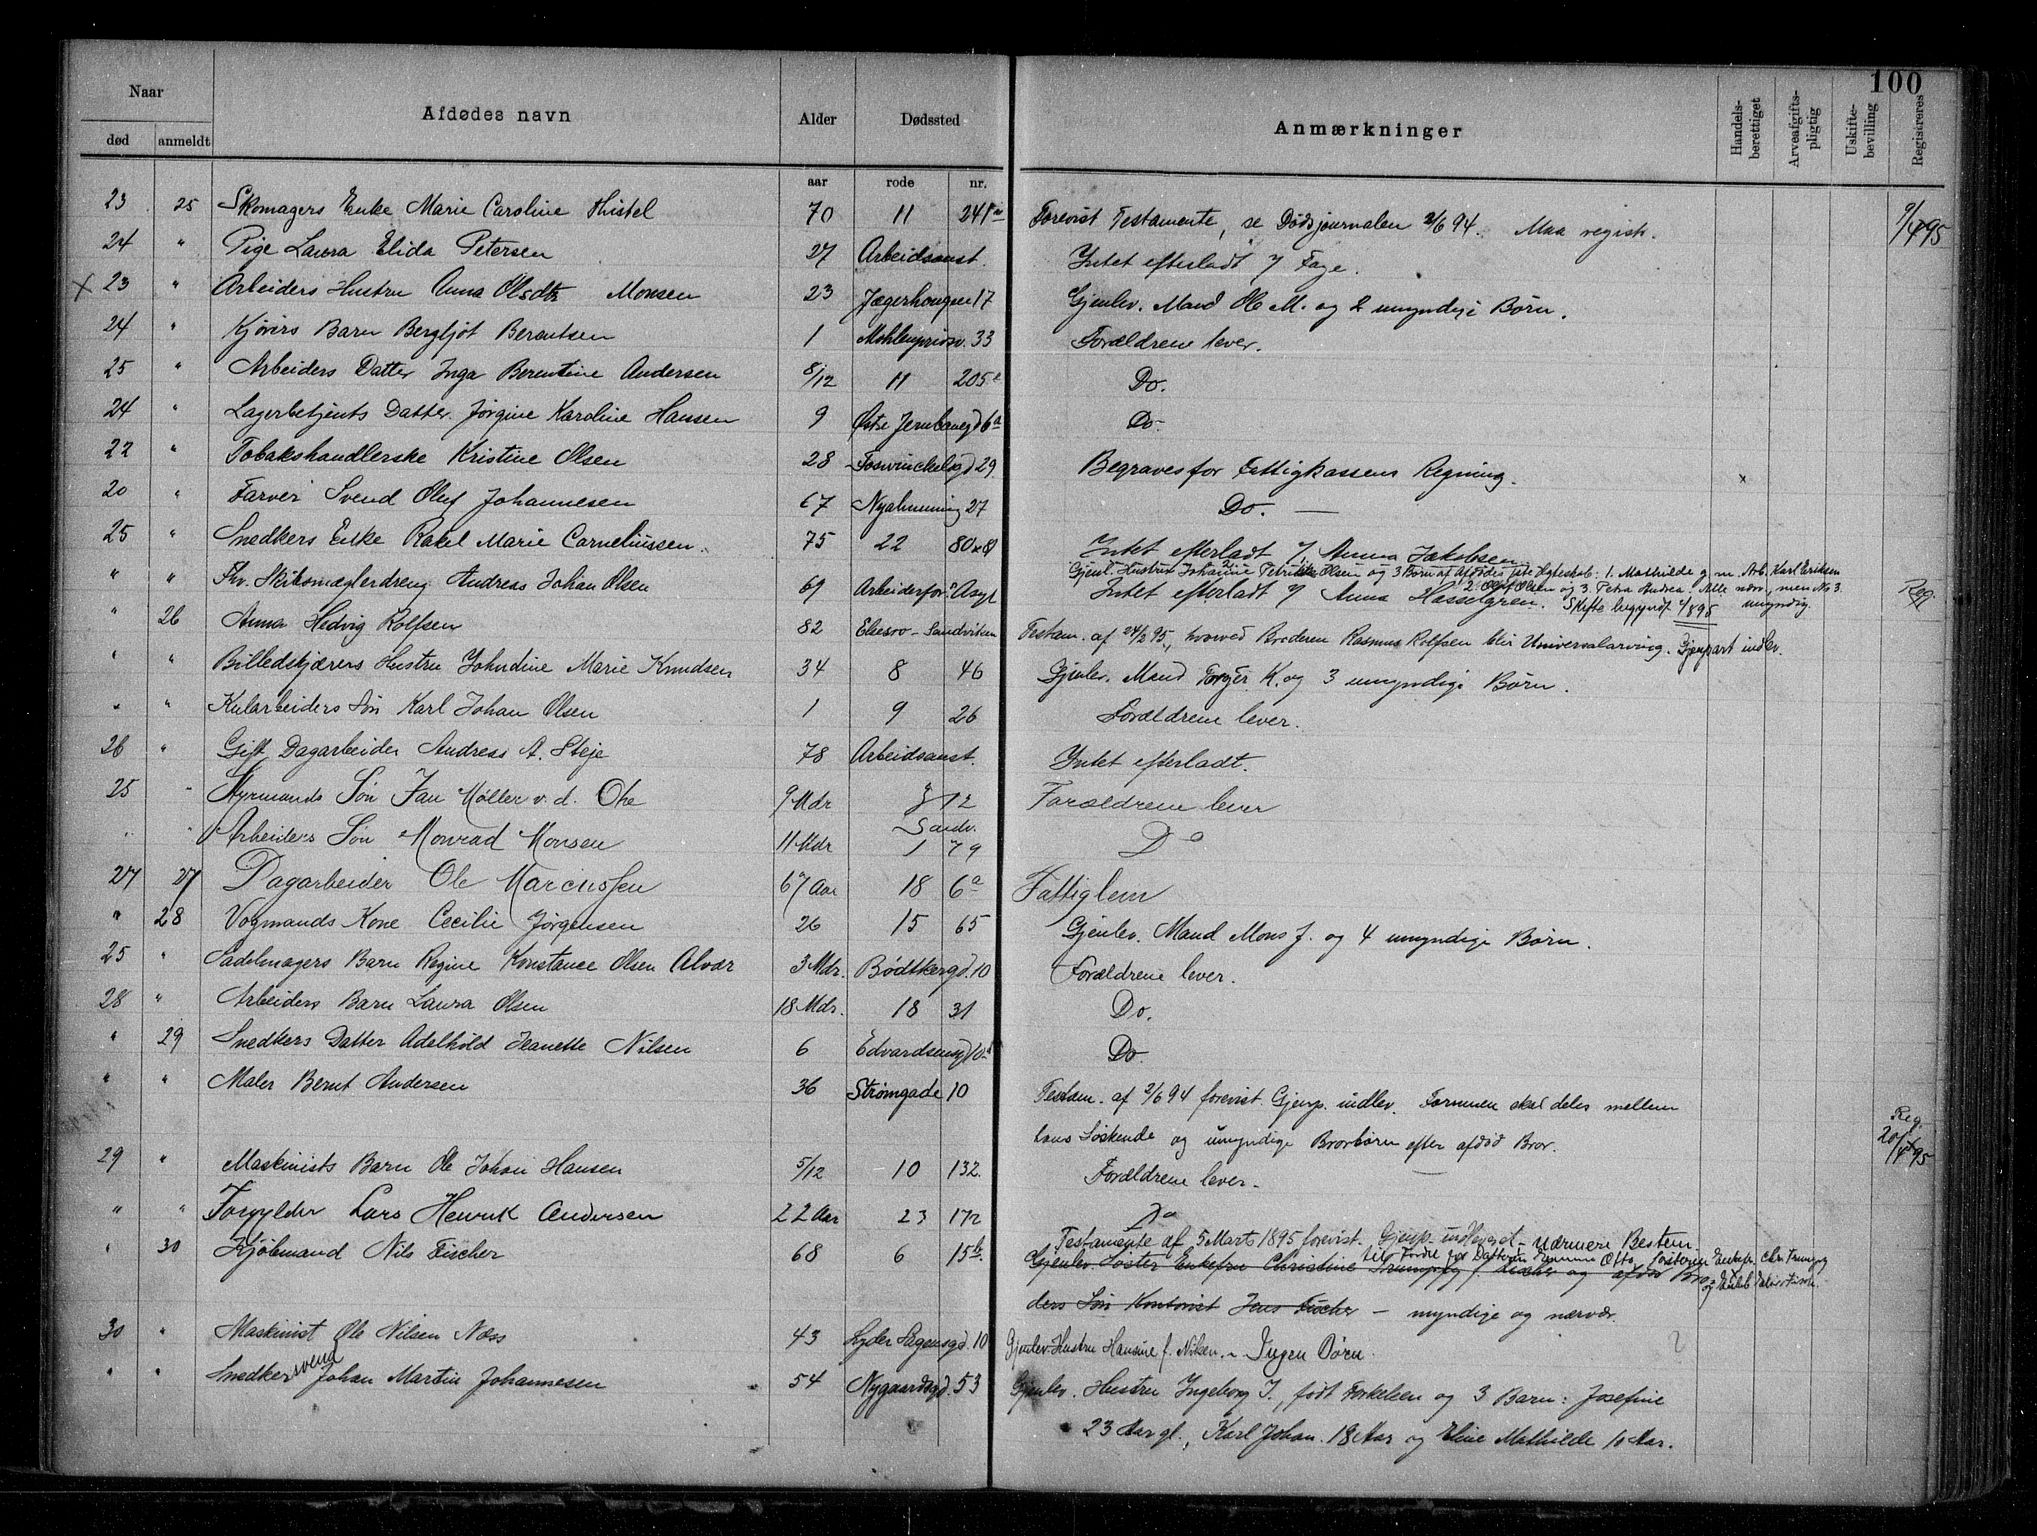 100
Naar
Afdødes navn
Alder
Dødssted
Anmærkninger
Handels-berettiget
Arveafgifts-pligtig
Uskifte-bevilling
Registreres
død anmeldt
aar rode nr.
23 25 Skomagers Enke Marie Caroline Thistel 70 11 241 Forevist Testamente, se Dødsjournalen 2/6 94. Maa regisk. 9/4 95
24 " Pige Laura Elida Petersen 27 Arbeidsanst. Intet efterladt
x 23 " Arbeiders Hustru Anna Olsdtr Monsen 23 Jægerhougen 17 Gjenlev. Mand Ole M. og 2 umyndige Børn.
24 " Kjørers Barn Bergljot Berentsen 1 Møhlenprisv. 33 Forældrene lever.
25 " Arbeiders Datter Inga Berentine Andersen 8/12 11 205 Do.
24 " Lagerbetjents Datter Jørgine Karoline Hansen 9 Østre Jernbanegd 6a Do.
22 " Tobakshandlerske Kristine Olsen 28 Foswinckelsgd 29 Begraves for Fattigkassens Regning. x
20 " Farver Svend Oluf Johannesen 67 Nyalmening 27 Do. —
25 " Snedkers Enke Rakel Marie Corneliussen 75 22 80 Intet efterladt Anna Jakobsen
Gjenl. Hustru Johanne Olsen og 3 Børn af Afdødes Ægteskab: 1. Mathilde g. m. Arb. Karl Eriksen
2. Olaf Olsen og 3. Petra Andrea. Alle nærv., men No 3.
" " Fhv. Skibsmæglerdreng Andreas Johan Olsen 69 Arbeiderfor. Asyl Intet efterladt Anna Hasselgren. Skifte begyndt 2/8 95 umyndig. Reg.
" 26 Anna Hedvig Rolfsen 82 Elsesro - Sandviken Testam. af 24/2 95, hvorved Broderen Rasmus Rolfsen blir Universalarving. Gjenpart indlev.
" " Billedskjærers Hustru Johndine Marie Knudsen 34 8 46 Gjenlev. Mand Torger K. og 3 umyndige Børn.
" " Kularbeiders Søn Karl Johan Olsen 1 9 26 Forældrene lever.
26 " Gift Dagarbeider Andreas A. Steje 78 Arbeidsanst. Intet efterladt.
25 " Styrmands Søn Jan Møller v. d. Ohe 9 Mdr 3 12 Forældrene lever
" " Arbeiders Søn Monrad Monsen 11 Mdr Sandv. 1 79 Do
27 27 Dagarbeider Ole Marcussen 67 Aar 18 6a Fattiglem
" 28 Vognmands Kone Cecilie Jørgensen 26 15 65 Gjenlev. Mand Mons J. og 4 umyndige Børn.
25 " Sadelmagers Barn Regine Konstance Olsen Alvær 3 Mdr. Bødtkergd. 10 Forældrene lever.
28 " Arbeiders Barn Laura Olsen 18 Mdr. 18 31 Do.
" 29 Snedkers Datter Adelhold Jeanette Nilsen 6 Edvardsensgd 10 Do
" " Maler Bernt Andersen 36 Strømgade 10 Testam. af 2/6 94 forevist. Gjenp. indlev. Formuen skal deles mellem
hans Søskende og umyndige Brorbørn efter afdød Bror. Reg. 20/4 95
29 " Maskinists Barn Ole Johan Hansen 5/12 10 132. Forældrene lever.
" " Forgylder Lars Henrik Andersen 22 Aar 23 172 Do
Testamente af 5 Marts 1895 forevist. Gjenp. indlevert - nærmere Bestem.
til Fordel for Datteren Otto, Søsteren Enkefr. Chr. Trumpy
" 30 Kjøbmand Nils Fischer 68 6 15b. Gjenlev. Søster Enkefru Christine Trumpy f. Fischer og afdød Bro-
ders Søn Kontorist Jens Fischer — myndige og nærvær.
30 " Maskinist Ole Nilsen Næss 43 Lyder Sagensgd. 10 Gjenlev. Hustru Hansine f. Nilsen. - Ingen Børn.
" " Snedkersvend Johan Martin Johannesen 54 Nygaardsgd. 53 Gjenlev. Hustru Ingeborg J., født Torkelsen og 3 Barn: Josefine
23 Aar gl., Karl Johan 18 Aar og Eline Mathilde 10 Aar.